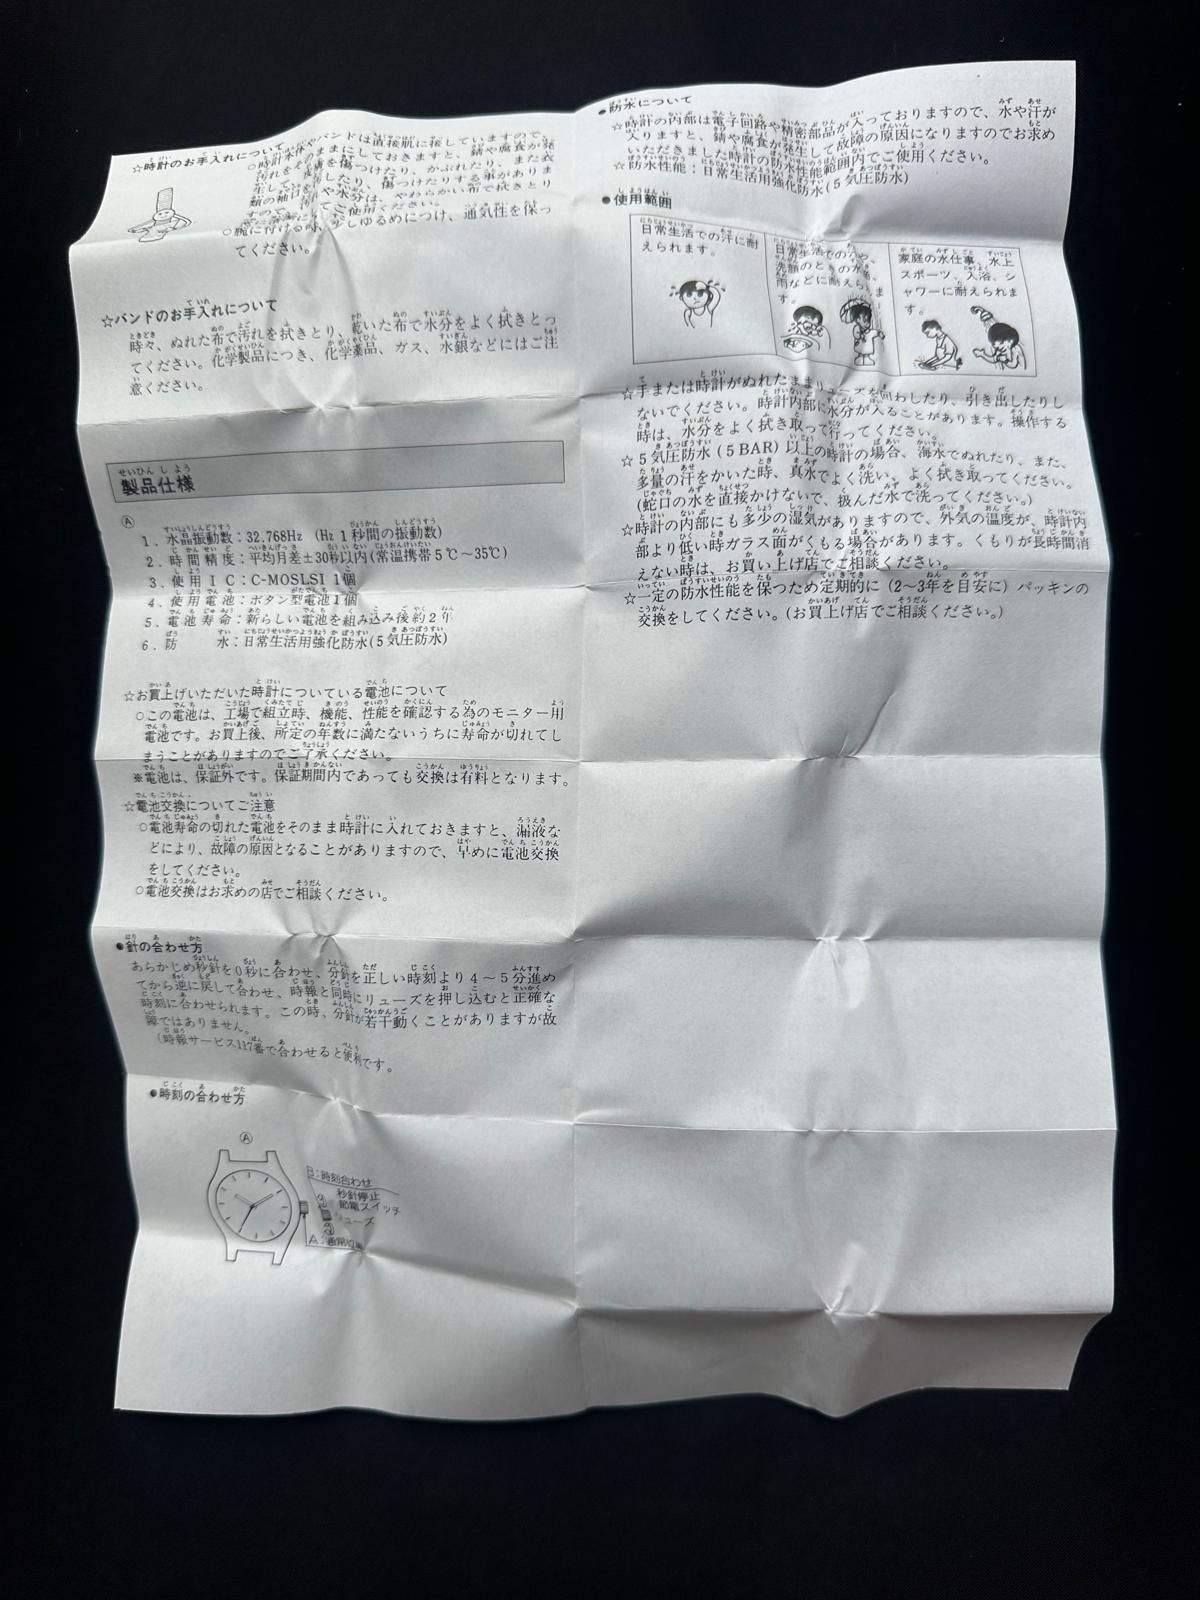 ☆時計のお手入れについて
○時計本体やバンドは直接肌に接していますので、
汚れをそのままにしておきますと、錆や腐食が発
生して皮膚を傷つけたり、かぶれたり、また衣
類の袖口を汚したり、傷つけたりする事がありま
やわらかい布で拭きとり
ご使用ください。
○腕に付ける時、少しゆるめにつけ、通気性を保っ
てください。
☆バンドのお手入れについて
時々、ぬれた布で汚れを拭きとり、乾いた布で水分をよく拭きとっ
てください。化学製品につき、化学薬品、ガス、水銀などにはご注
意ください。
製品仕様
Ⓐ
1．水晶振動数：32,768Hz （Hz 1秒間の振動数）
2．時間精度：平均月差±30秒以内（常温携帯5℃〜35℃）
3．使用ＩＣ：C-MOSLSI 1個
4．使用電池：ボタン型電池1個
5．電池寿命：新らしい電池を組み込み後約2年
6．防　　水：日常生活用強化防水（5気圧防水）
☆お買上げいただいた時計についている電池について
○この電池は、工場で組立時、機能、性能を確認する為のモニター用
電池です。お買上後、所定の年数に満たないうちに寿命が切れてし
まうことがありますのでご了承ください。
※電池は、保証外です。保証期間内であっても交換は有料となります。
☆電池交換についてご注意
○電池寿命の切れた電池をそのまま時計に入れておきますと、漏液な
どにより、故障の原因となることがありますので、早めに電池交換
をしてください。
○電池交換はお求めの店でご相談ください。
●針の合わせ方
あらかじめ秒針を0秒に合わせ、分針を正しい時刻より4〜5分進め
てから逆に戻して合わせ、時報と同時にリューズを押し込むと正確な
時刻に合わせられます。この時、分針が若干動くことがありますが故
障ではありません。
（時報サービス117番で合わせると便利です。
●時刻の合わせ方
Ⓐ
B：時刻合わせ
秒針停止
節電スイッチ
リューズ
A：通常位置
●防水について
☆時計の内部は電子回路や精密部品が入っておりますので、水や汗が
入りますと、錆や腐食が発生して故障の原因になりますのでお求め
いただきました時計の防水性能範囲内でご使用ください。
☆防水性能：日常生活用強化防水（5気圧防水）
●使用範囲
日常生活での汗に耐
えられます。
日常生活での汗や、
洗顔のときの水滴、
雨などに耐えられま
す。
家庭の水仕事、水上
スポーツ、入浴、シ
ャワーに耐えられま
す。
☆手または時計がぬれたままリューズを回わしたり、引き出したりし
ないでください。時計内部に水分が入ることがあります。操作する
時は、水分をよく拭き取って行ってください。
☆5気圧防水（5 BAR）以上の時計の場合、海水でぬれたり、また、
多量の汗をかいた時、真水でよく洗い、よく拭き取ってください。
（蛇口の水を直接かけないで、扱んだ水で洗ってください。）
☆時計の内部にも多少の湿気がありますので、外気の温度が、時計内
部より低い時ガラス面がくもる場合があります。くもりが長時間消
えない時は、お買い上げ店でご相談ください。
☆一定の防水性能を保つため定期的に（2〜3年を目安に）パッキンの
交換をしてください。（お買上げ店でご相談ください。）